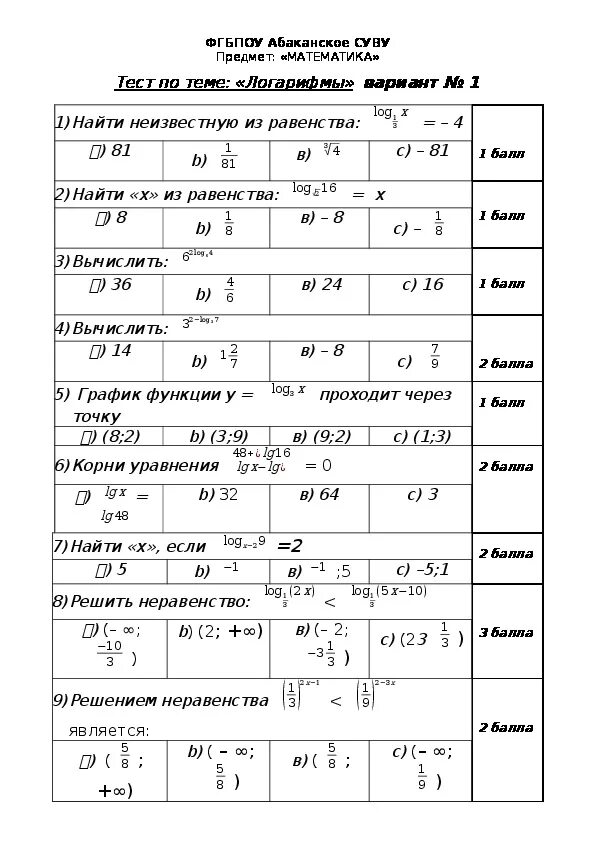 ФГБПОУ Абаканское СУВУ
Предмет: «МАТЕМАТИКА»
Тест по теме: «Логарифмы» вариант № 1
1) Найти неизвестную из равенства: log 1/3 x = – 4
1 балл
) 81 b) 1/81 в) ∛4 с) – 81
2) Найти «х» из равенства: log 16 = х
1 балл
) 8 b) 1/8 в) – 8 с) – 1/8
3) Вычислить: 6^2log 4
1 балл
) 36 b) 4/6 в) 24 с) 16
4) Вычислить: 3^2−log 7
2 балла
) 14 b) 1 2/7 в) – 8 с) 7/9
5) График функции у = log₃ x проходит через
точку
1 балл
) (8;2) b) (3;9) в) (9;2) с) (1;3)
6) Корни уравнения 48+¿ lg16 lg x−lg¿ = 0
2 балла
) lg x = lg 48 b) 32 в) 64 с) 3
7) Найти «х», если log x−2 9 =2
2 балла
) 5 b) −1 в) −1 ;5 с) –5;1
8) Решить неравенство: log 1/3 (2x) < log 1/3 (5x−10)
3 балла
) (– ∞; −10/3 ) b) (2; +∞) в) (– 2; −3 1/3 ) с) (23 1/3 )
9) Решением неравенства (1/3)^2x−1 < (1/9)^2−3x
является:
2 балла
) ( 5/8 ; +∞) b) ( – ∞; 5/8 ) в) ( 5/8 ; с) (– ∞; 1/9 )